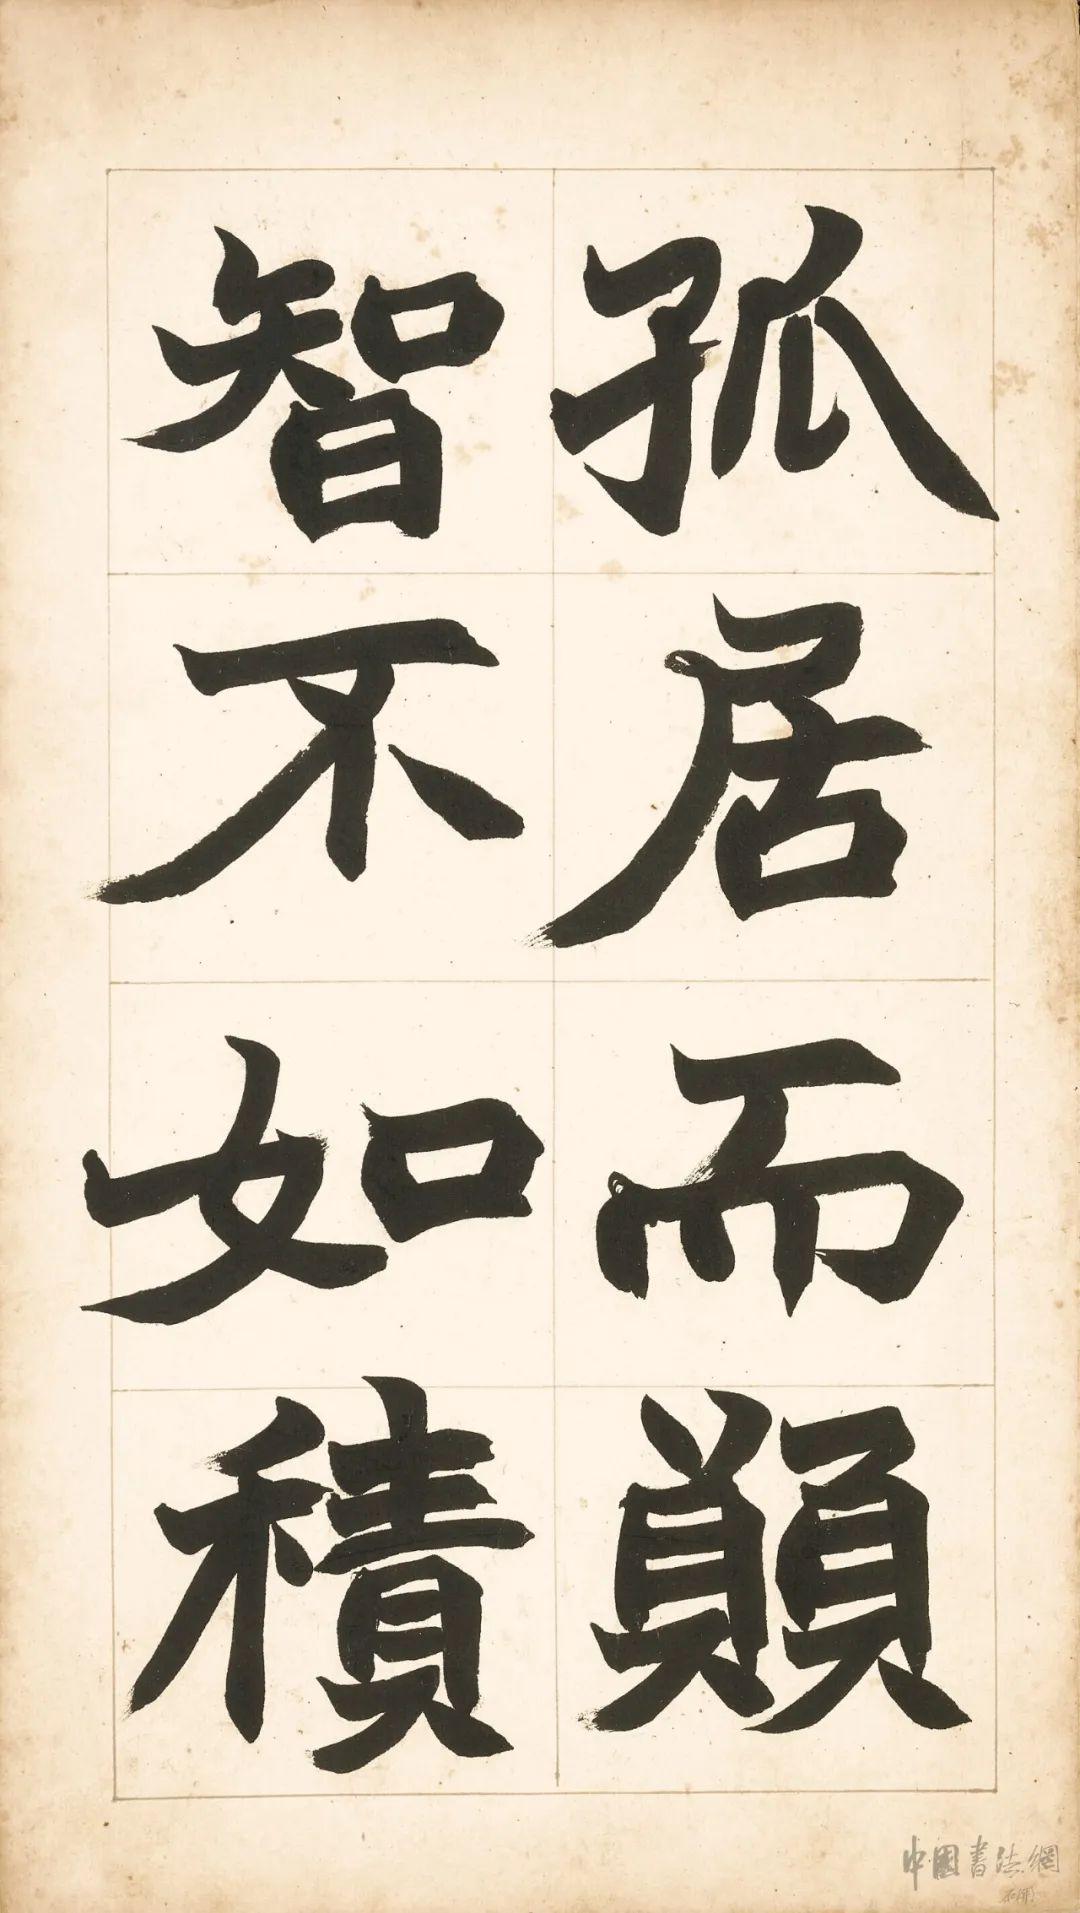 孤居而願
智不如積
中國書法網